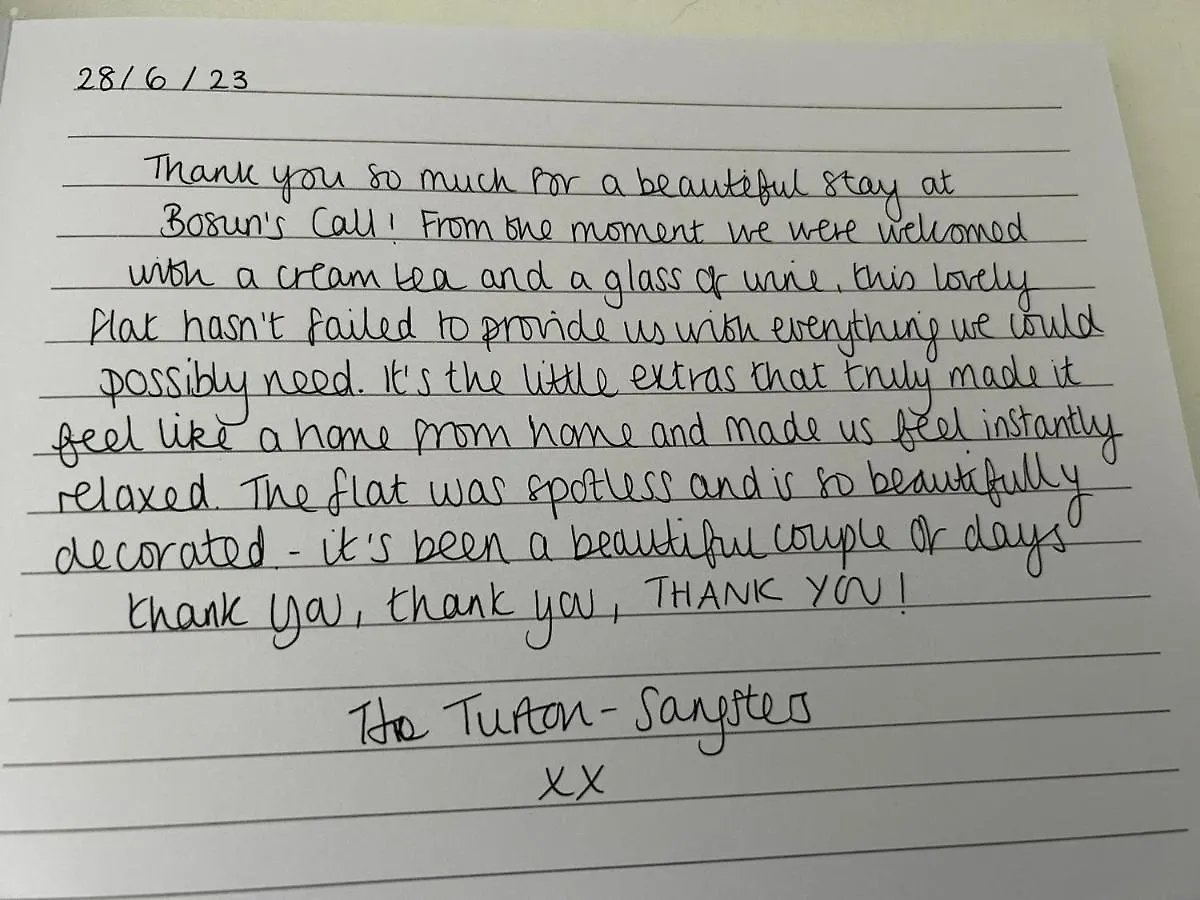 28/6/23
Thank you so much for a beautiful stay at
Bosun's Call! From the moment we were welcomed
with a cream tea and a glass of wine, this lovely
flat hasn't failed to provide us with everything we could
possibly need. It's the little extras that truly made it
feel like a home from home and made us feel instantly
relaxed. The flat was spotless and is so beautifully
decorated - it's been a beautiful couple of days
thank you, thank you, THANK YOU!
The Turton-Sangsters
xx